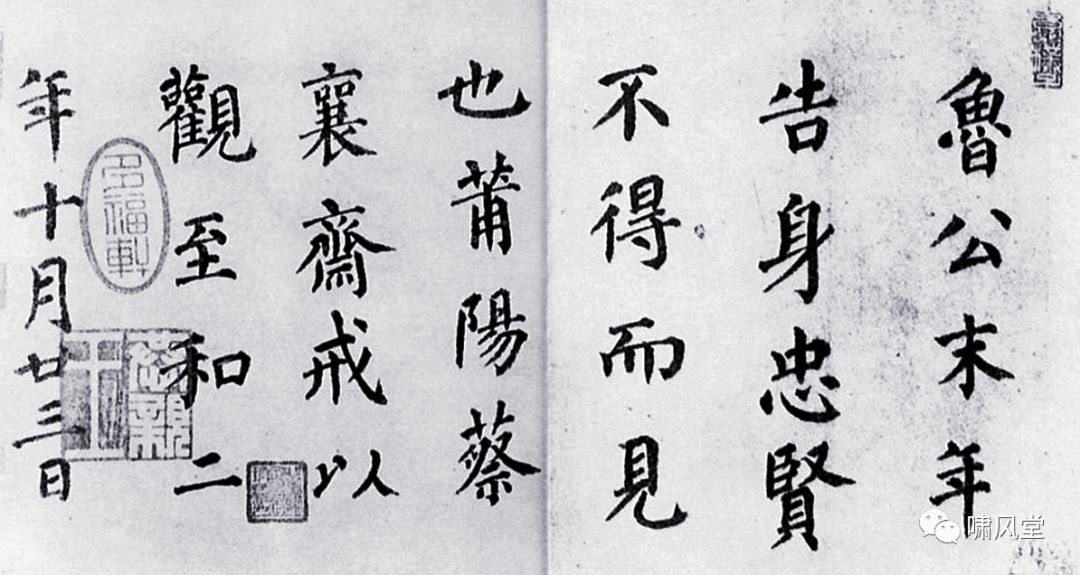 魯公末年
告身忠賢
不得而見
也莆陽蔡
襄齋戒以
觀至和二
年十月廿三日
多福軒
啸风堂